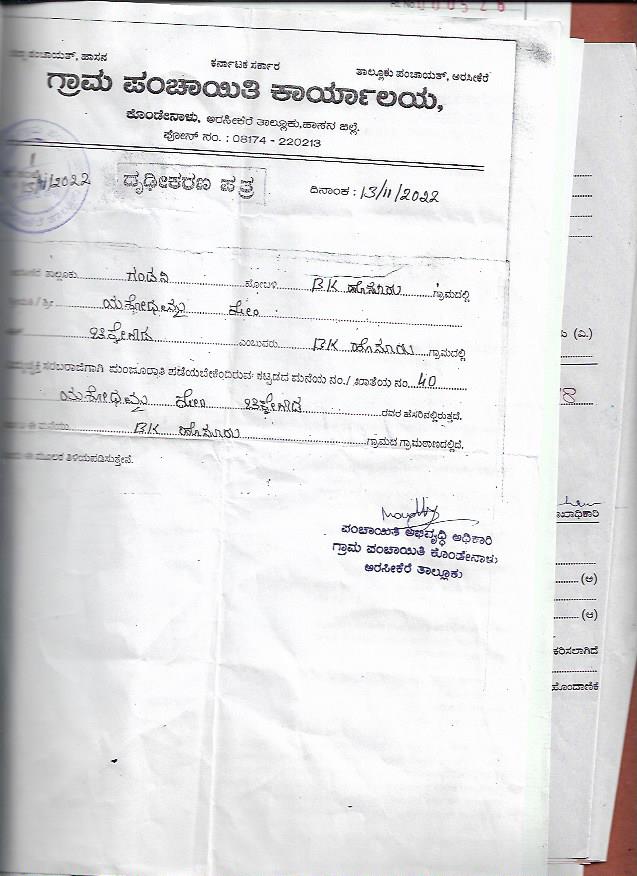 ಪಂಚಾಯತ್, ಹಾಸನ
ಕರ್ನಾಟಕ ಸರ್ಕಾರ
ತಾಲ್ಲೂಕು ಪಂಚಾಯತ್, ಅರಸೀಕೆರೆ
ಗ್ರಾಮ ಪಂಚಾಯಿತಿ ಕಾರ್ಯಾಲಯ,
ಕೊಂಡೇನಾಳು, ಅರಸೀಕೆರೆ ತಾಲ್ಲೂಕು, ಹಾಸನ ಜಿಲ್ಲೆ.
ಫೋನ್ ನಂ. : 08174 - 220213
13/11/2022
ದೃಢೀಕರಣ ಪತ್ರ
ದಿನಾಂಕ : 13/11/2022
ತಾಲ್ಲೂಕು ಗಂಡಸಿ ಹೋಬಳಿ BK ಹೊಸೂರು ಗ್ರಾಮದಲ್ಲಿ
ಶ್ರೀಮತಿ / ಶ್ರೀ ಯಶೋಧಮ್ಮ ಕೋಂ
ಎಂಬುವರು BK ಹೊಸೂರು ಗ್ರಾಮದಲ್ಲಿ
ಸರಬರಾಜಿಗಾಗಿ ಮಂಜೂರಾತಿ ಪಡೆಯಬೇಕೆಂದಿರುವ ಕಟ್ಟಡದ ಮನೆಯ ನಂ./ ಖಾತೆಯ ನಂ. 40
ಯಶೋಧಮ್ಮ ಕೋಂ ರವರ ಹೆಸರಿನಲ್ಲಿರುತ್ತದೆ.
ಈ ಮನೆಯು BK ಹೊಸೂರು ಗ್ರಾಮದ ಗ್ರಾಮಠಾಣದಲ್ಲಿದೆ.
ಈ ಮೂಲಕ ತಿಳಿಯಪಡಿಸುತ್ತೇನೆ.
ಪಂಚಾಯಿತಿ ಅಭಿವೃದ್ಧಿ ಅಧಿಕಾರಿ
ಗ್ರಾಮ ಪಂಚಾಯಿತಿ ಕೊಂಡೇನಾಳು
ಅರಸೀಕೆರೆ ತಾಲ್ಲೂಕು
(ಎ)
(ಅ)
(ಆ)
ಕರಿಸಲಾಗಿದೆ
ಹೊಂದಾಣಿಕೆ